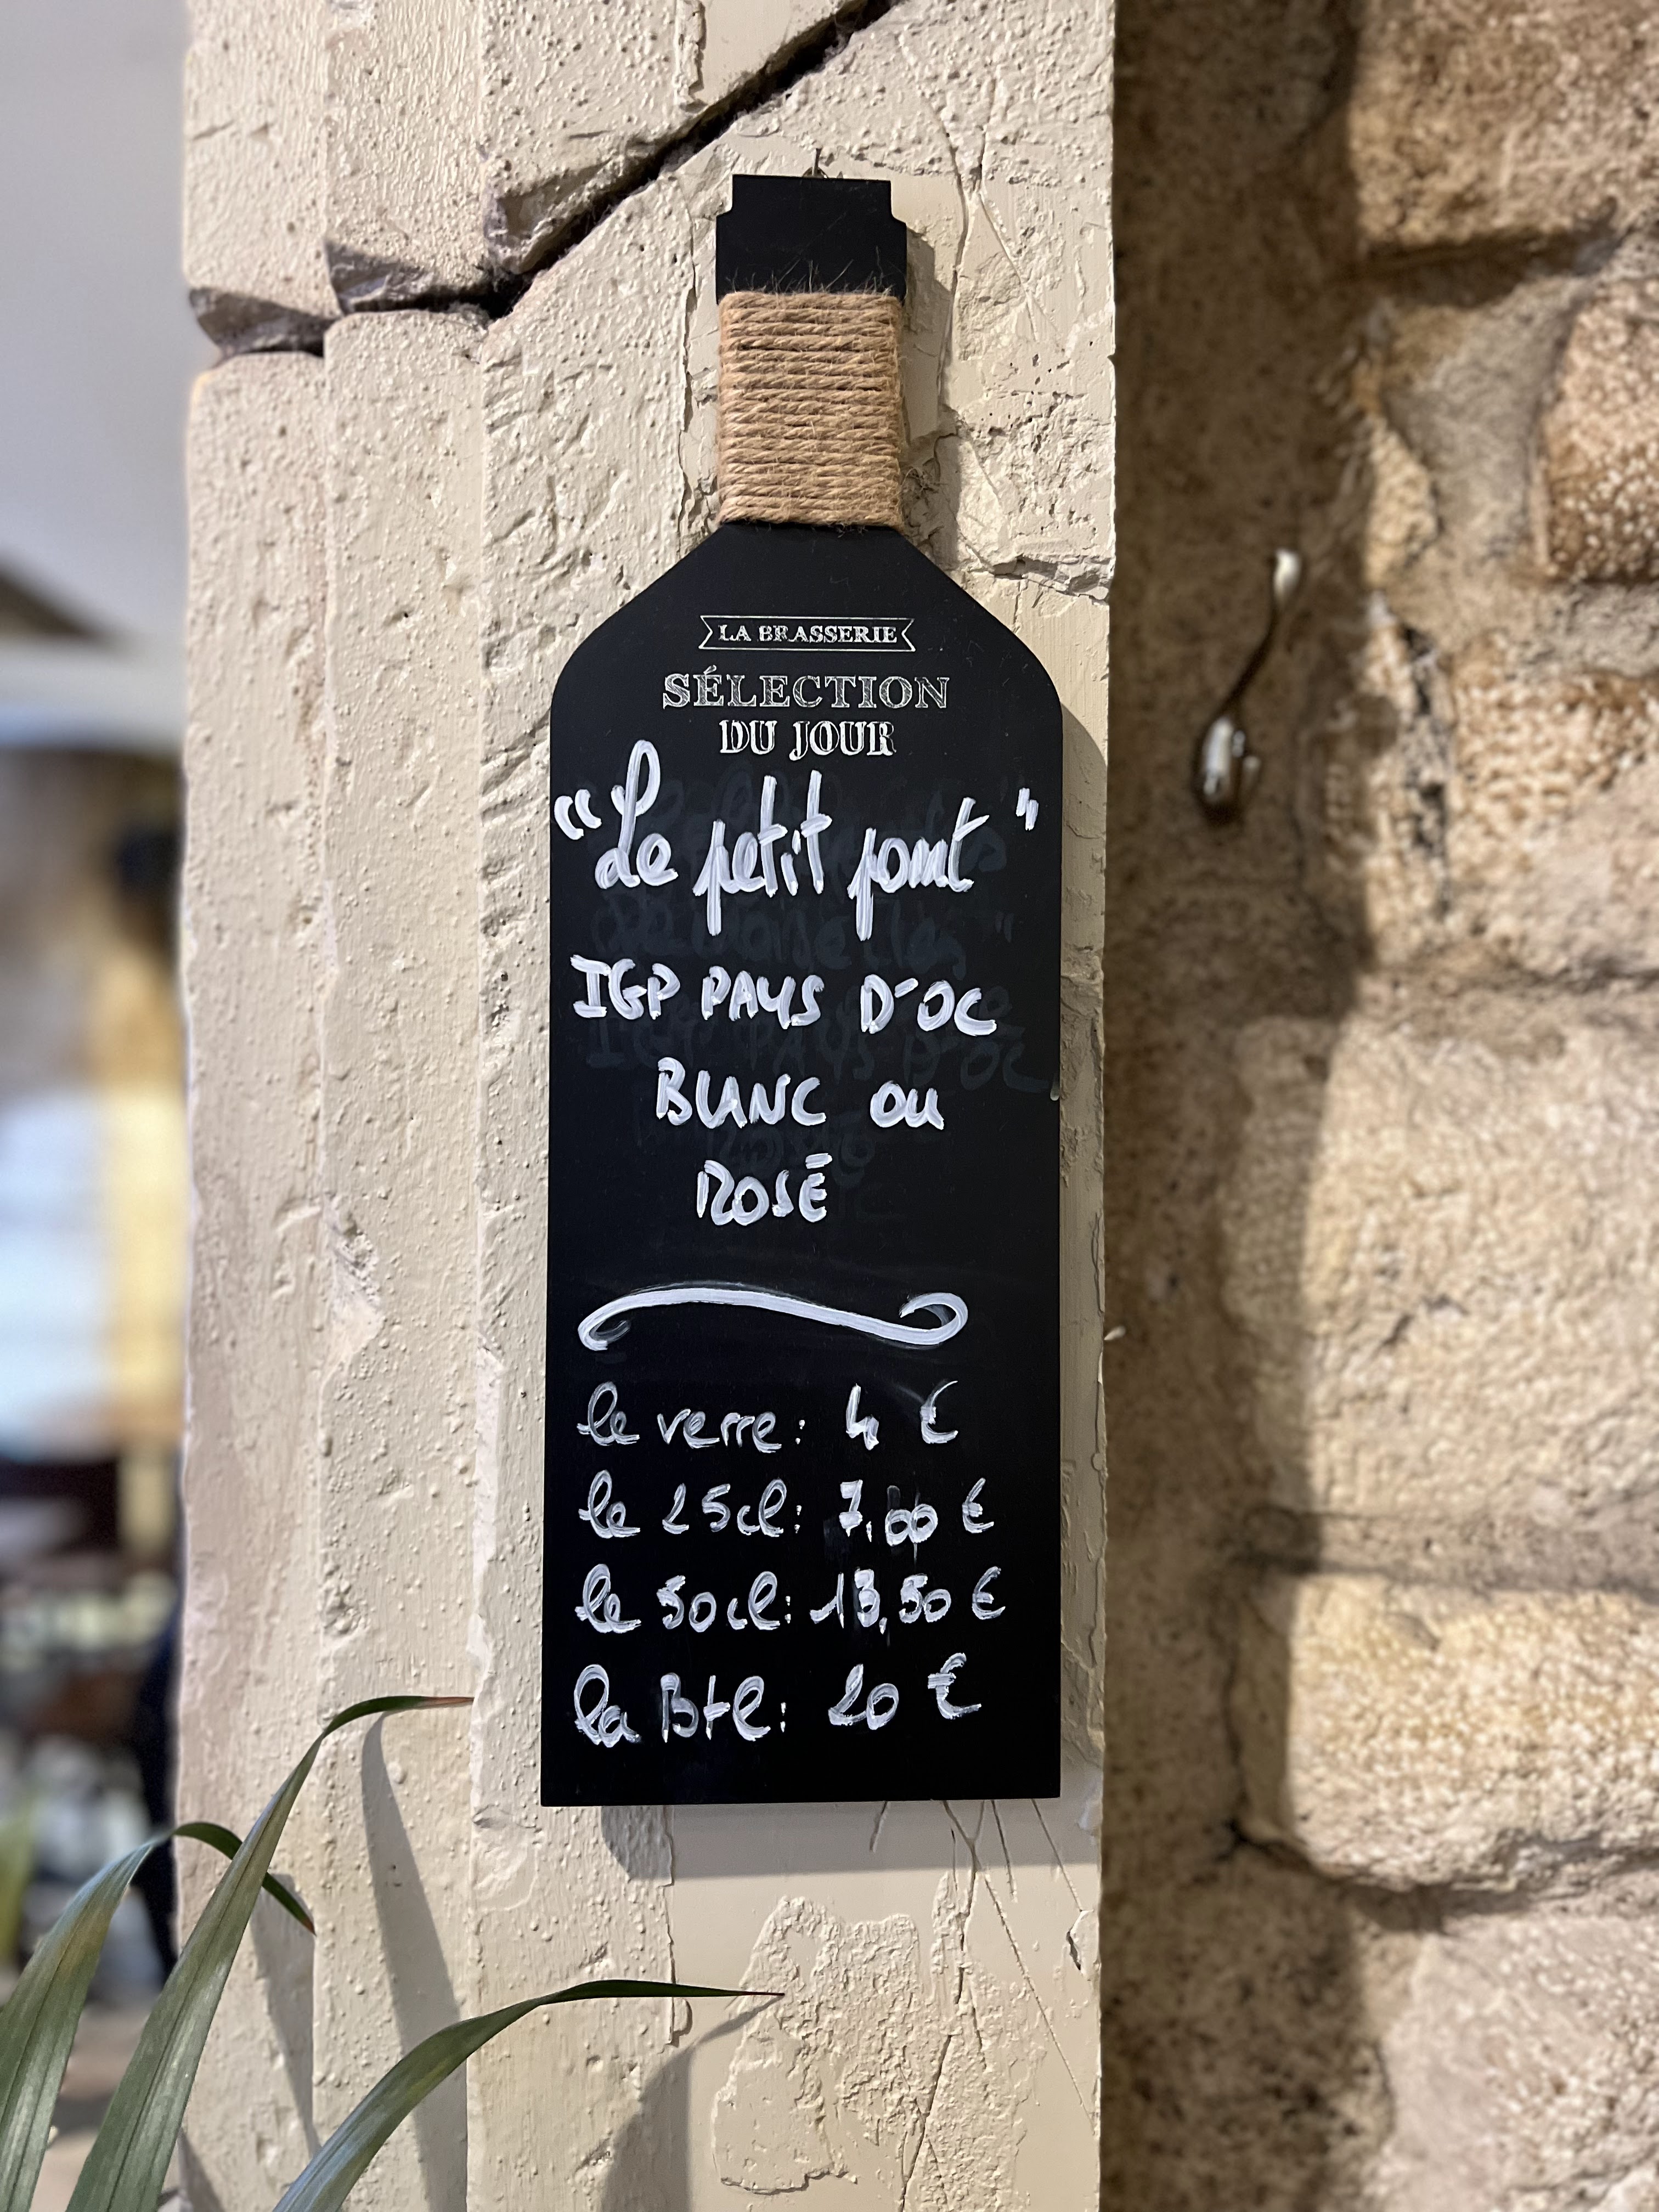 LA BRASSERIE
SÉLECTION
DU JOUR
"Le petit pont"
IGP PAYS D'OC
BLANC ou
ROSÉ
le verre: 4 €
le 25cl: 7,00 €
le 50cl: 13,50 €
la Btl: 20 €